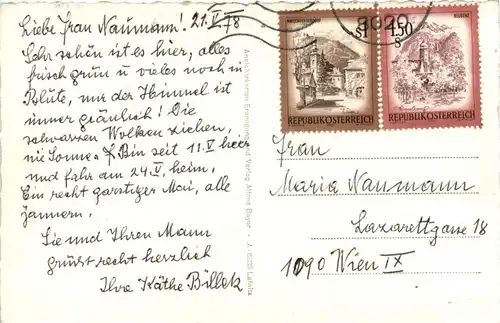 Liebe Frau Naumann! 21.V.78
Sehr schön ist es hier, alles
frisch grün u vieles noch in
Blüte, nur der Himmel ist
immer gräulich! Die
schwarzen Wolken ziehen,
nie Sonne. Bin seit 11.V hier
und fahr am 24.V. heim.
Ein recht garstiger Mai, alle
jammern.
Sie und Ihren Mann
grüsst recht herzlich
Ihre Käthe Billek
Verlag Alfons Bayer
8020
S1
REPUBLIK ÖSTERREICH
1.50
S
BLUDENZ
REPUBLIK ÖSTERREICH
Frau
Maria Naumann
Lazarettgasse 18
1090 Wien IX